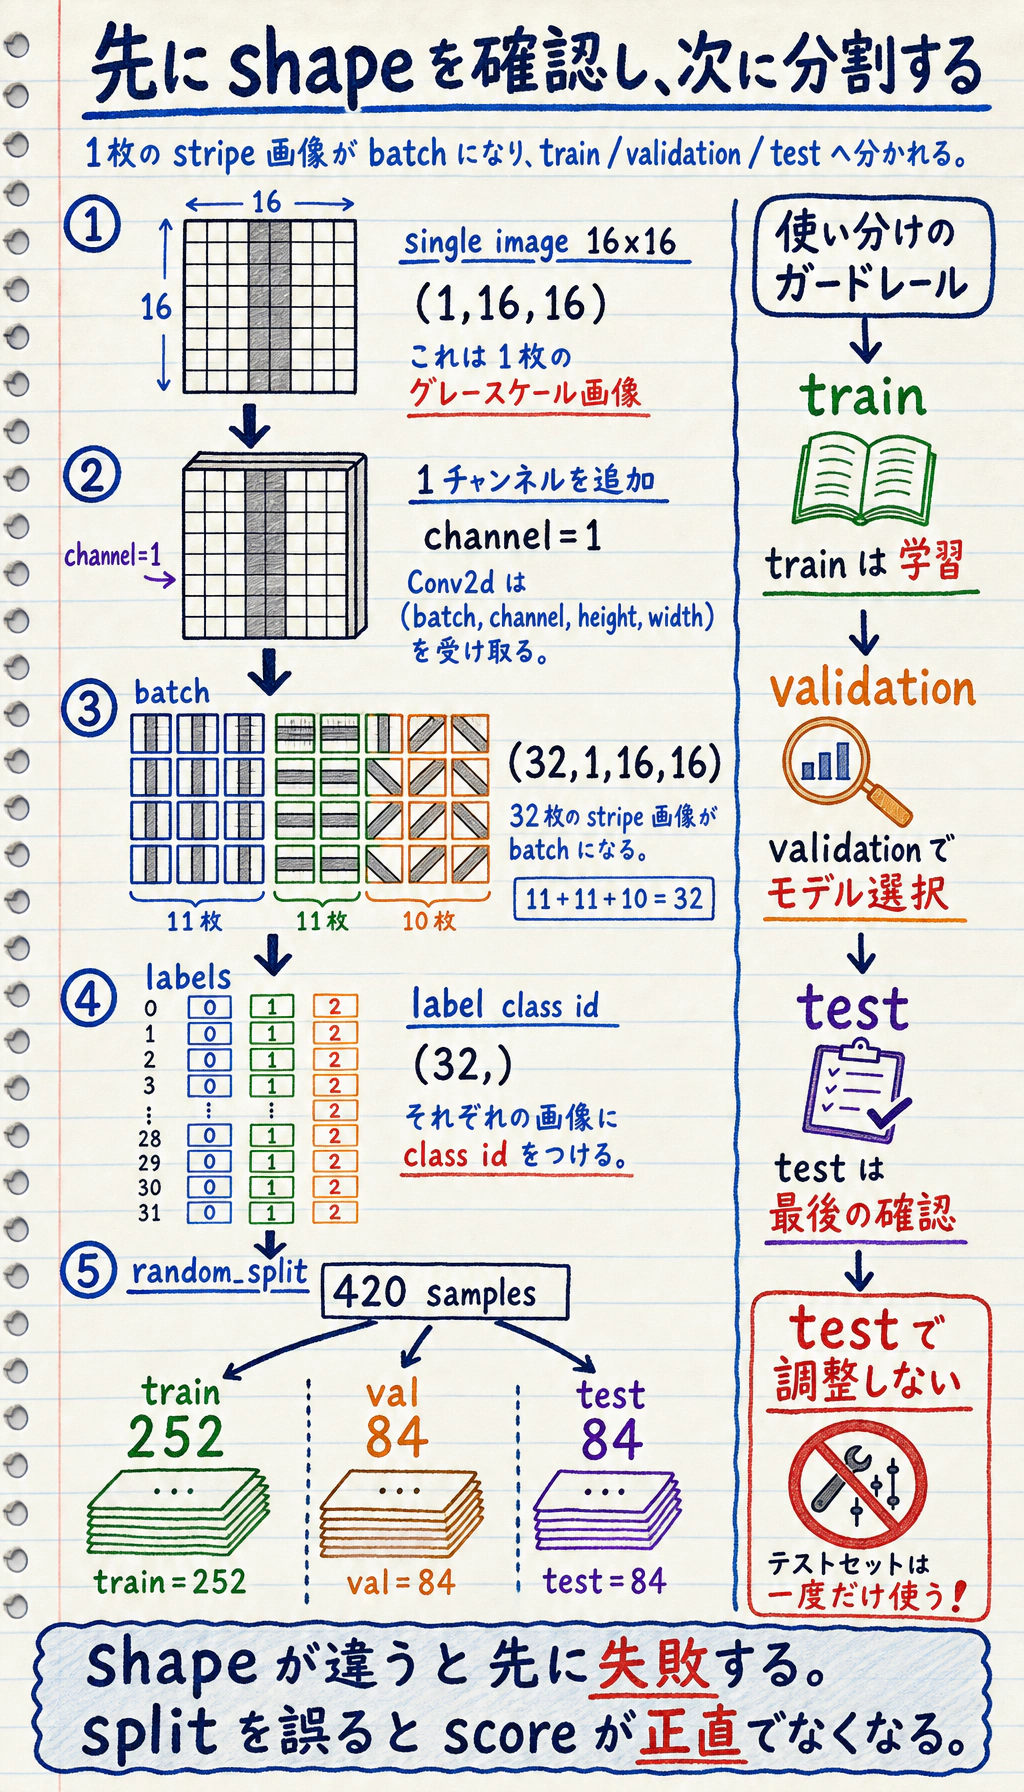 先に shape を確認し、次に分割する
1枚の stripe 画像が batch になり、train / validation / test へ分かれる。
①
16
16
single image 16×16
(1,16,16)
これは 1枚の
グレースケール画像
②
channel=1
1 チャンネルを追加
channel=1
Conv2d は
(batch, channel, height, width)
を受け取る。
③
batch
11枚
11枚
10枚
(32,1,16,16)
32枚の stripe 画像が
batch になる。
11+11+10=32
④
labels
0 0 1 2
1 0 1 2
2 0 1 2
3 0 1 2
⋮ ⋮ ⋮ 2
28 0 1 2
29 0 1 2
30 0 1 2
31 0 1 2
label class id
(32,)
それぞれの画像に
class id をつける。
⑤
random_split
420 samples
train
252
...
train=252
val
84
...
val=84
test
84
...
test=84
使い分けの
ガードレール
train
train は 学習
validation
validation で
モデル選択
test
test は
最後の確認
test で
調整しない
テストセットは
一度だけ使う!
shape が違うと 先に失敗する。
split を誤ると score が正直でなくなる。